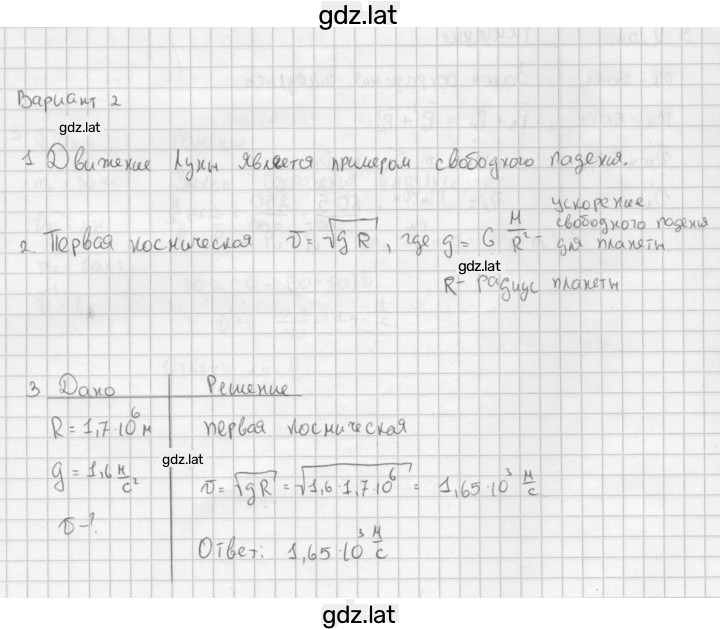 gdz.lat
Вариант 2
gdz.lat
1 Движение Луны является примером свободного падения.
2 Первая космическая v = √gR, где g = G M/R² - ускорение свободного падения для планеты
gdz.lat
R - радиус планеты
3 Дано Решение
R = 1,7·10⁶ м первая космическая
gdz.lat
g = 1,6 м/с² v = √gR = √1,6·1,7·10⁶ = 1,65·10³ м/с
v - ?
Ответ: 1,65·10³ м/с
gdz.lat
gdz.lat